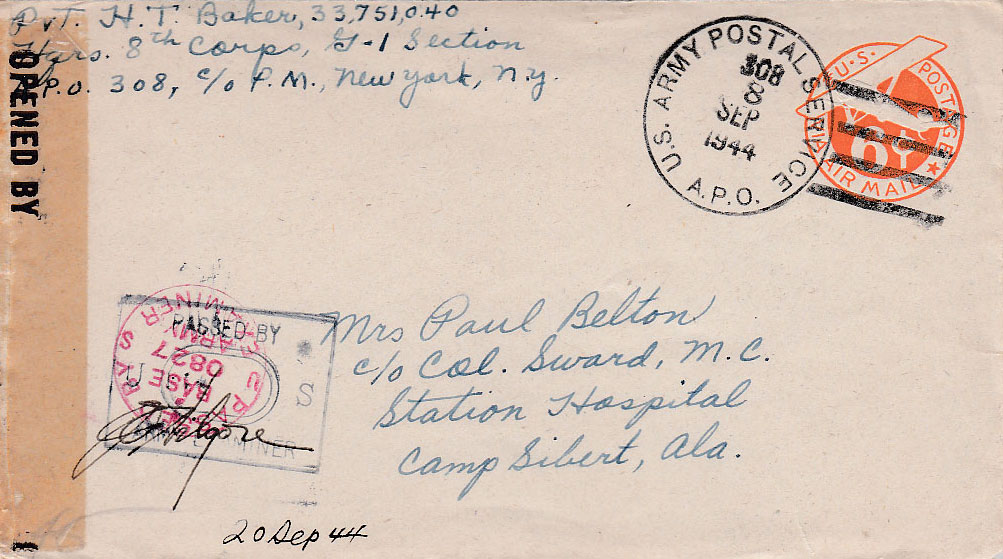 Pvt. H. T. Baker, 33,751,040
Hqrs. 8th Corps, G-1 Section
A.P.O. 308, c/o P.M., New York, N.Y.
OPENED BY
U.S. ARMY POSTAL SERVICE
308
8
SEP
1944
A.P.O.
U.S. POSTAGE
6¢
VIA AIR MAIL
PASSED BY
U S
ARMY EXAMINER
PASSED BY
BASE
0827
ARMY EXAMINER
U.S.
Mrs Paul Belton
c/o Col. Sward, M.C.
Station Hospital
Camp Sibert, Ala.
20 Sep 44